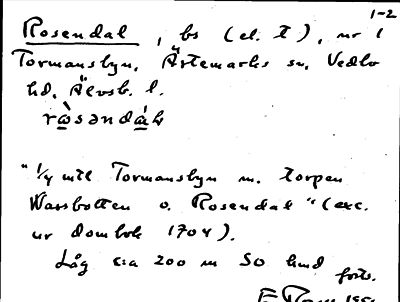 1-2
Rosendal, bs (el. t), nr 1
Tormansbyn, Ärtemarks sn, Vedbo
hd, Älvsb. l.
"1/4 mtl Tormansbyn m. torpen
Wassbotten o. Rosendal" (exc.
ur dombok 1704).
Låg ca 200 m SO hmd
forts.